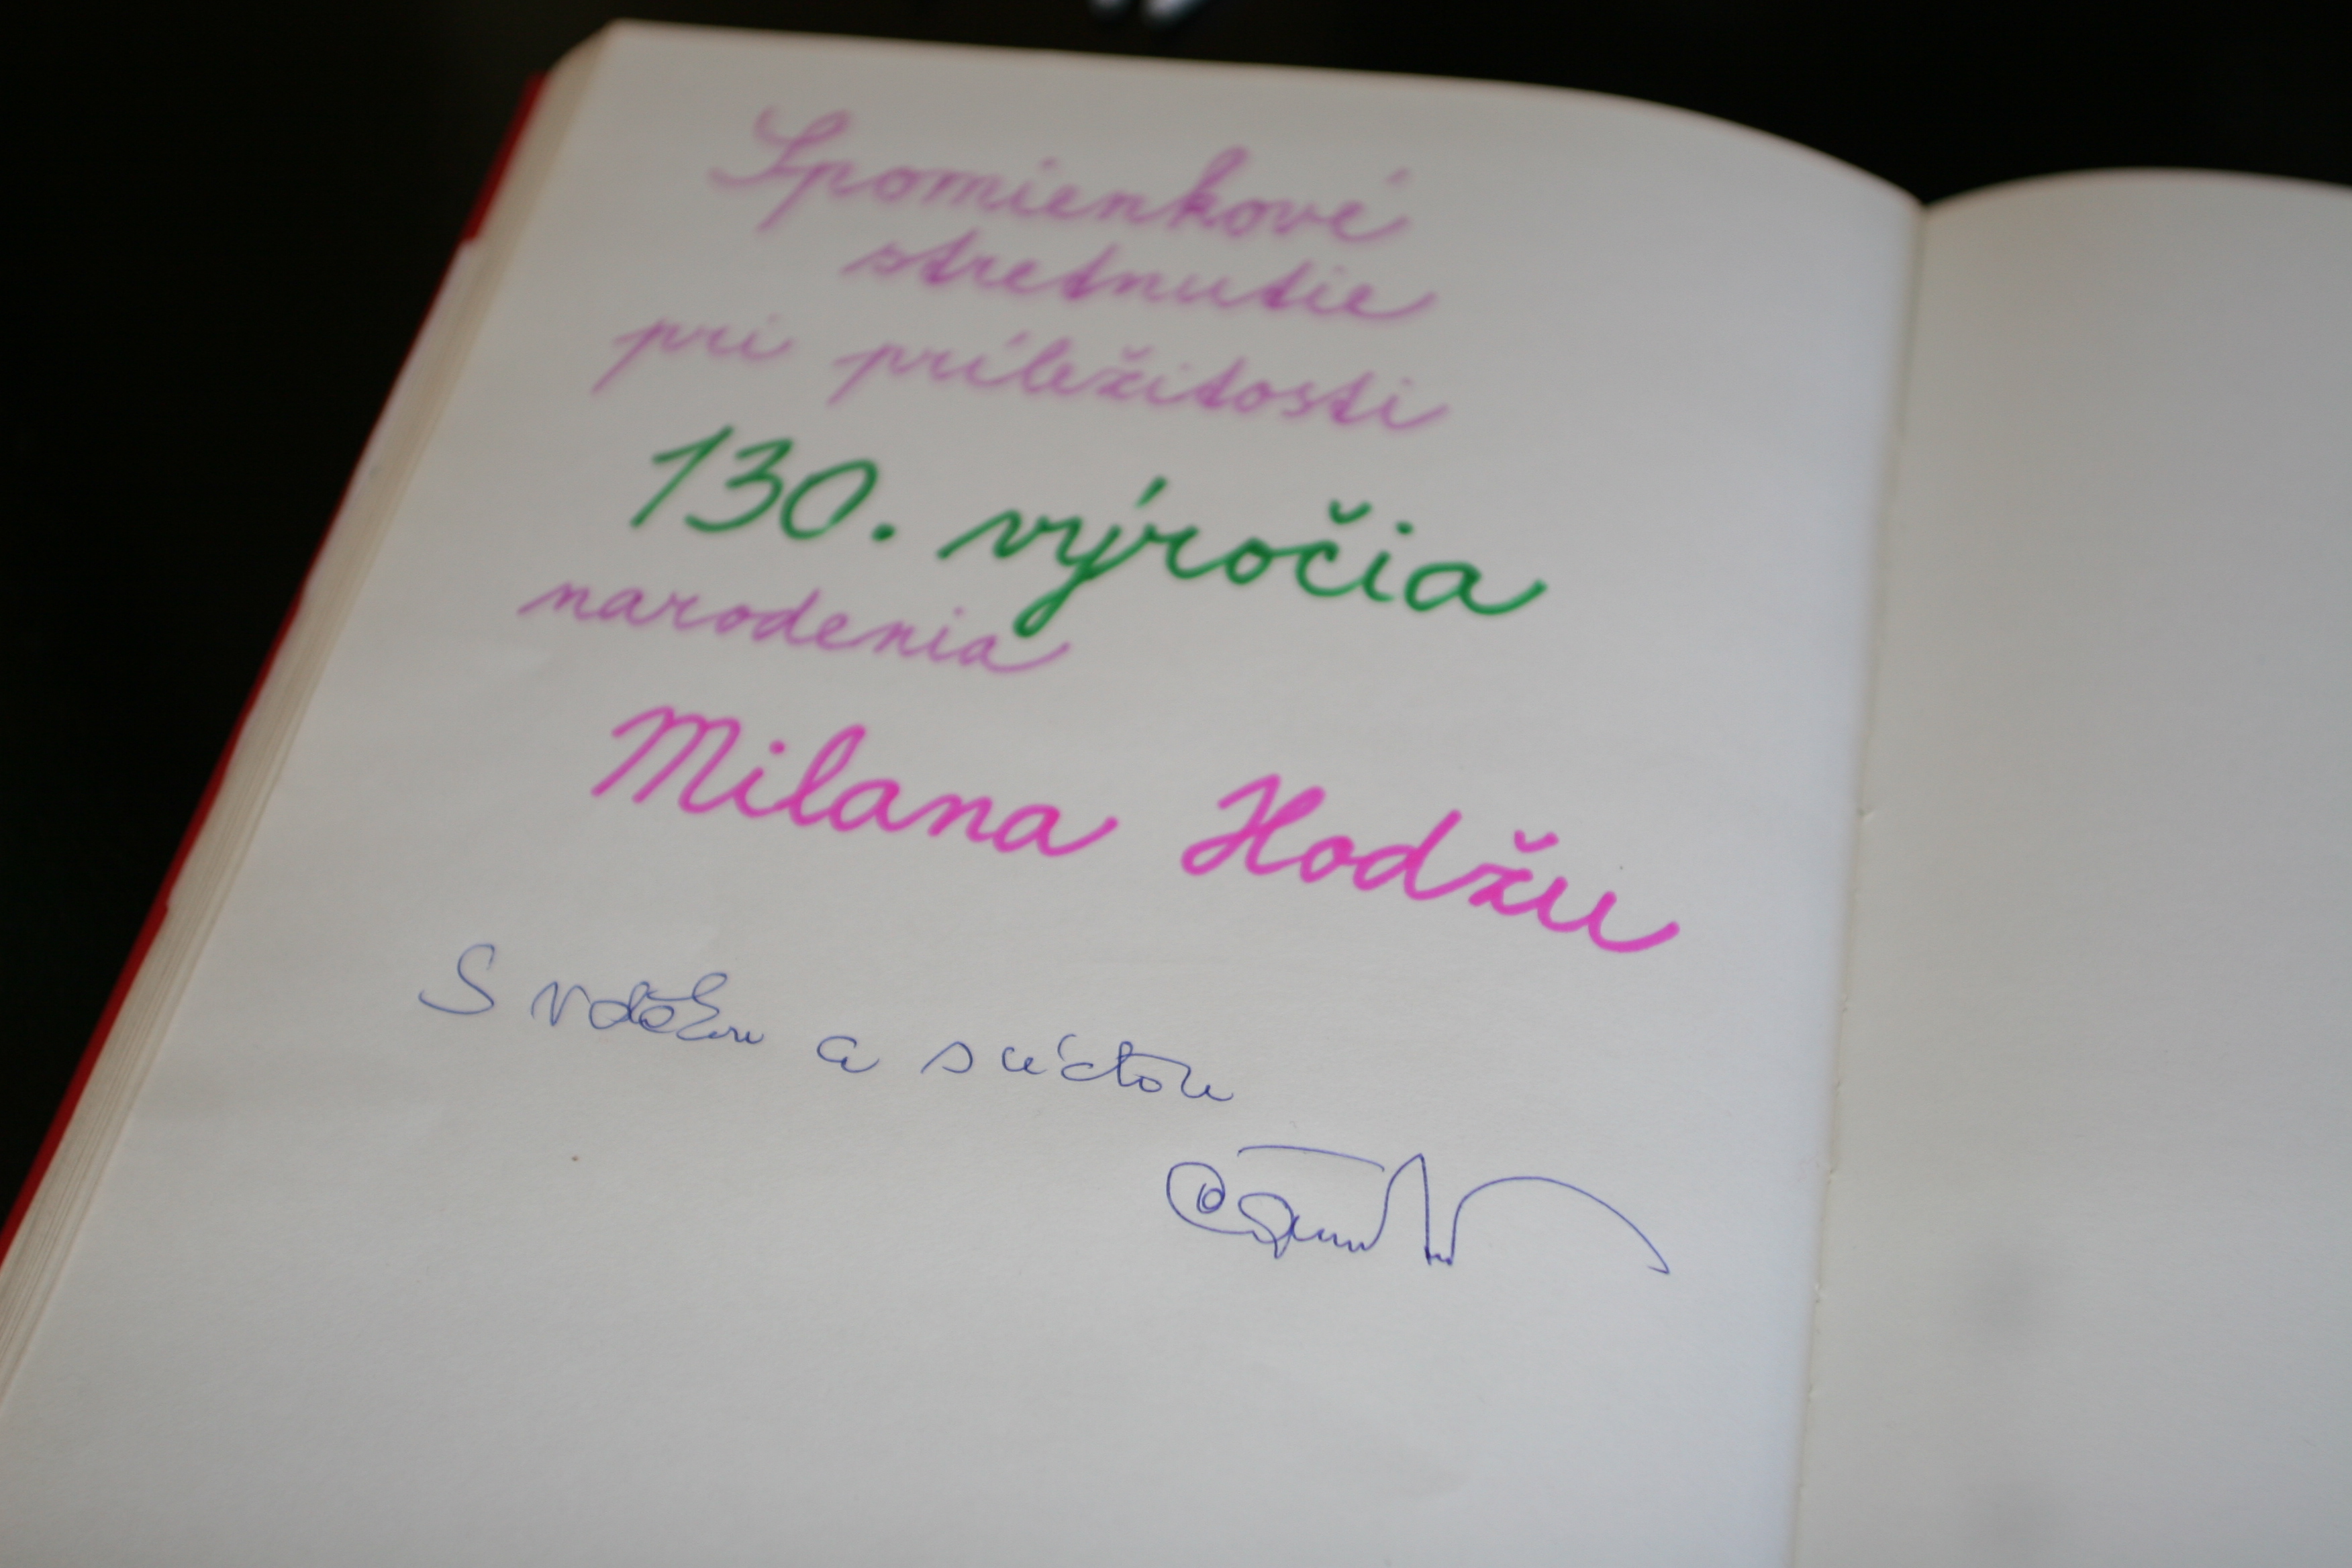 Spomienkové
stretnutie
pri príležitosti
130. výročia
narodenia
Milana Hodžu
S vďakou a s úctou